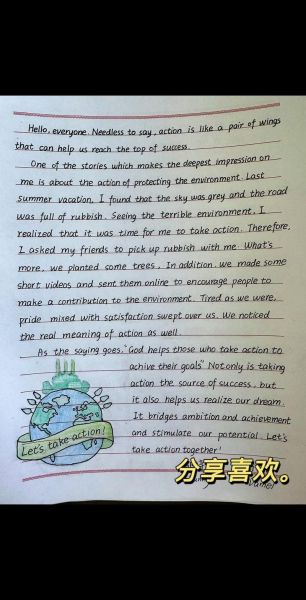 Hello, everyone. Needless to say, action is like a pair of wings
that can help us reach the top of success.
One of the stories which makes the deepest impression on
me is about the action of protecting the environment. Last
summer vacation, I found that the sky was grey and the road
was full of rubbish. Seeing the terrible environment, I
realized that it was time for me to take action. Therefore,
I asked my friends to pick up rubbish with me. What's
more, we planted some trees. In addition, we made some
short videos and sent them online to encourage people to
make a contribution to the environment. Tired as we were,
pride mixed with satisfaction swept over us. We noticed
the real meaning of action as well.
As the saying goes, "God helps those who take action to
achive their goals" Not only is taking
action the source of success, but
it also helps us realize our dream.
It bridges ambition and achievement
and stimulate our potential. Let's
take action together!
Let's take action!
分享喜欢。